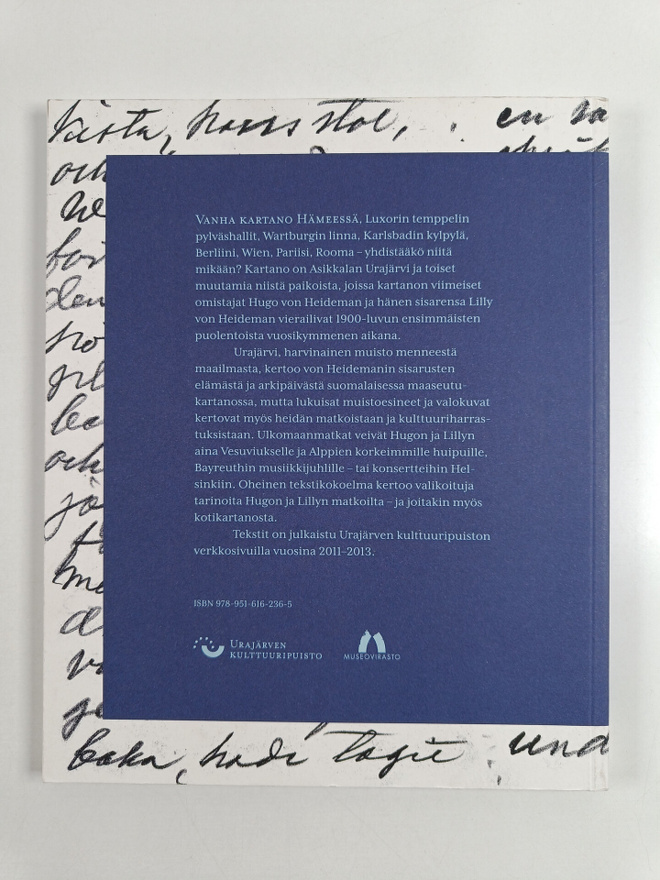 kista, hans stol,
en
och
den
och
VANHA KARTANO HÄMEESSÄ, Luxorin temppelin
pylväshallit, Wartburgin linna, Karlsbadin kylpylä,
Berliini, Wien, Pariisi, Rooma – yhdistääkö niitä
mikään? Kartano on Asikkalan Urajärvi ja toiset
muutamia niistä paikoista, joissa kartanon viimeiset
omistajat Hugo von Heideman ja hänen sisarensa Lilly
von Heideman vierailivat 1900-luvun ensimmäisten
puolentoista vuosikymmenen aikana.
Urajärvi, harvinainen muisto menneestä
maailmasta, kertoo von Heidemanin sisarusten
elämästä ja arkipäivästä suomalaisessa maaseutu-
kartanossa, mutta lukuisat muistoesineet ja valokuvat
kertovat myös heidän matkoistaan ja kulttuuriharras-
tuksistaan. Ulkomaanmatkat veivät Hugon ja Lillyn
aina Vesuviukselle ja Alppien korkeimmille huipuille,
Bayreuthin musiikkijuhlille – tai konsertteihin Hel-
sinkiin. Oheinen tekstikokoelma kertoo valikoituja
tarinoita Hugon ja Lillyn matkoilta – ja joitakin myös
kotikartanosta.
Tekstit on julkaistu Urajärven kulttuuripuiston
verkkosivuilla vuosina 2011–2013.
ISBN 978-951-616-236-5
URAJÄRVEN
KULTTUURIPUISTO
MUSEOVIRASTO
und